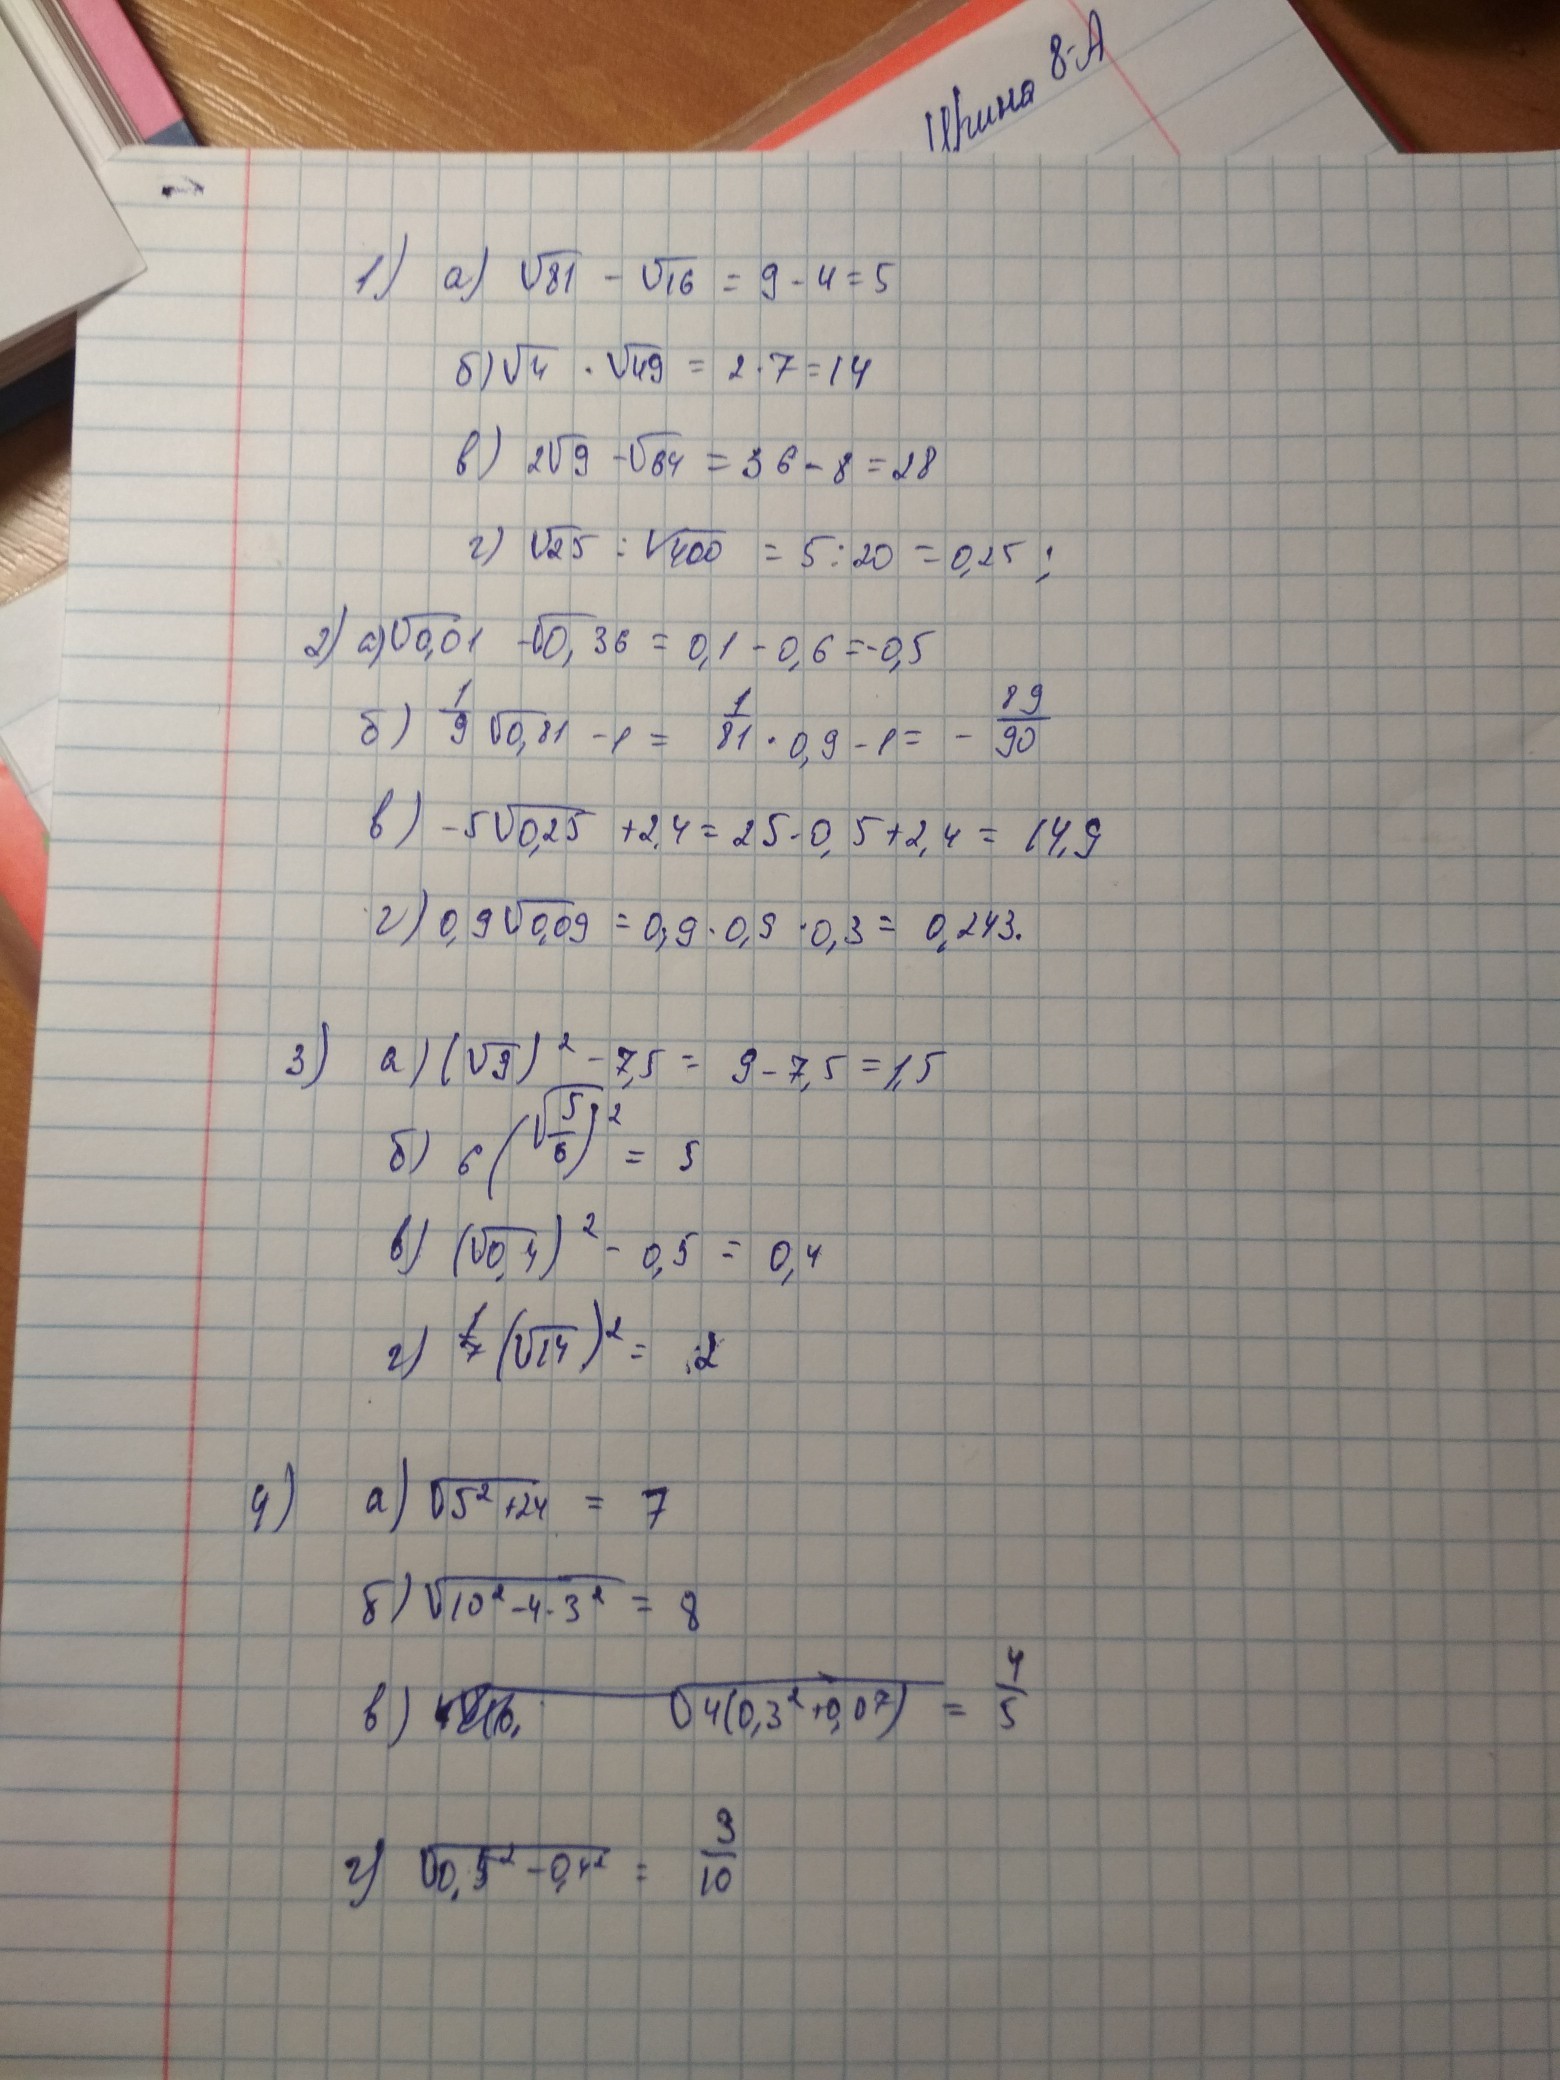 Ирина 8-А
1) а) √81 - √16 = 9 - 4 = 5
б) √4 · √49 = 2 · 7 = 14
в) 2√9 - √64 = 36 - 8 = 28
г) √25 : √400 = 5 : 20 = 0,25 ;
2) а) √0,01 - √0,36 = 0,1 - 0,6 = -0,5
б) 1/9 √0,81 - 1 = 1/81 · 0,9 - 1 = - 89/90
в) -5√0,25 + 2,4 = 25 · 0,5 + 2,4 = 14,9
г) 0,9√0,09 = 0,9 · 0,9 · 0,3 = 0,243.
3) а) (√9)² - 7,5 = 9 - 7,5 = 1,5
б) 6 (√5/6)² = 5
в) (√0,4)² - 0,5 = 0,4
г) 1/7 (√14)² = 2
4) а) √5² + 24 = 7
б) √10² - 4 · 3² = 8
в) √4(0,3² + 0,07) = 4/5
г) √0,5² - 0,4² = 3/10